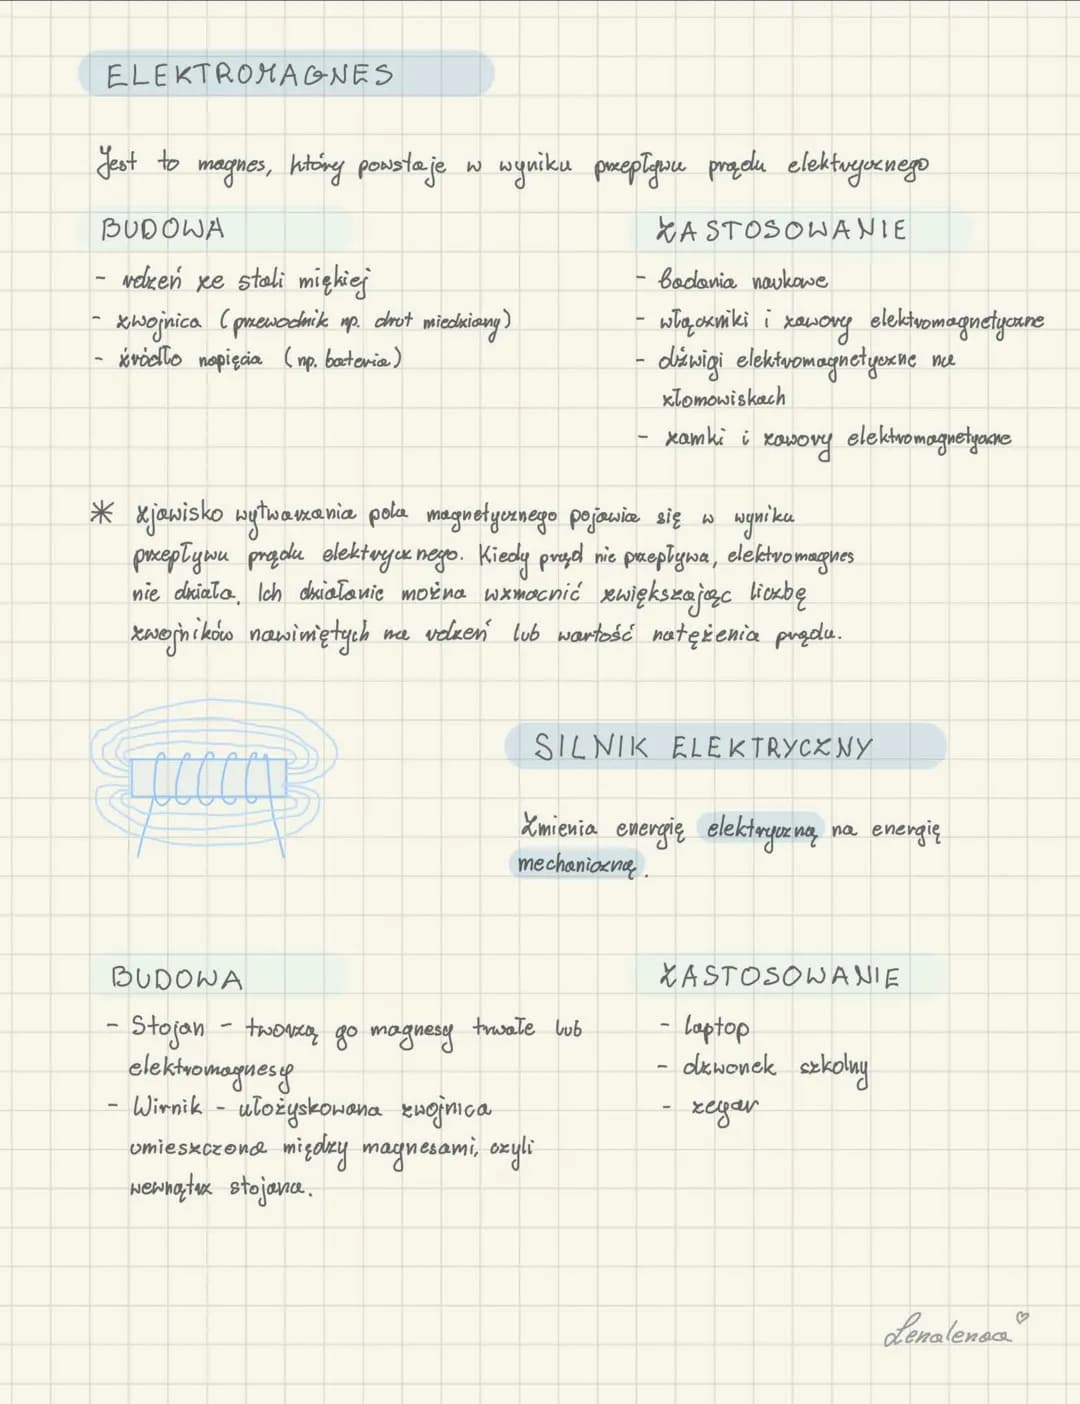 ELEKTROMAGNES
Jest to magnes, który powstaje w wyniku przepływu prądu elektrycznego
BUDOWA
- rdzeń ze stali miękiej
- zwojnica (przewodnik np. drut miedziany)
- źródło napięcia (np. bateria)
ZASTOSOWANIE
- badania naukowe
- włączniki i zawory elektromagnetyczne
- dźwigi elektromagnetyczne na
złomowiskach
- zamki i zawory elektromagnetyczne
* zjawisko wytwarzania pola magnetycznego pojawia się w wyniku
przepływu prądu elektrycznego. Kiedy prąd nie przepływa, elektromagnes
nie działa. Ich działanie można wzmocnić zwiększając liczbę
zwojników nawiniętych na rdzeń lub wartość natężenia prądu.
SILNIK ELEKTRYCZNY
Zmienia energię elektryczną na energię
mechaniczną.
BUDOWA
- Stojan - tworzą go magnesy trwałe lub
elektromagnesy
- Wirnik - ułożyskowana zwojnica
umieszczona między magnesami, czyli
wewnątrz stojana.
ZASTOSOWANIE
- laptop
- dzwonek szkolny
- zegar
Lenalenaa